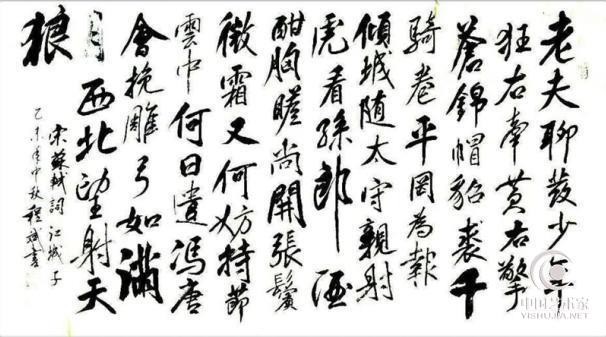 老夫聊發少年
狂右牽黃右擎
蒼錦帽貂裘千
騎卷平岡為報
傾城随太守親射
虎看孫郎酒
酣胸膽尚開張鬢
微霜又何妨持節
雲中何日遣馮唐
會挽雕弓如滿
月西北望射天
狼
宋蘇軾詞江城子
乙未年中秋程斌書
中国艺术家
YISHUJIA.NET